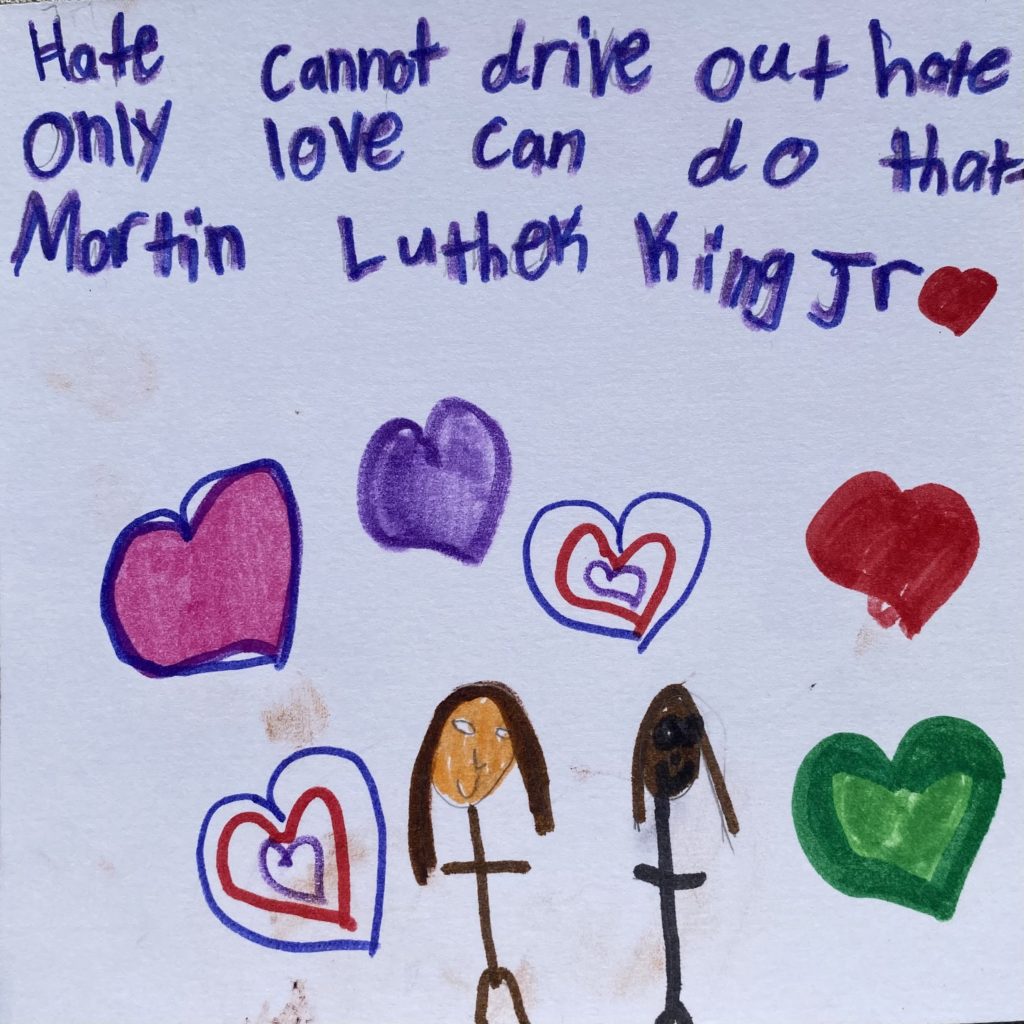 Hate cannot drive out hate
only love can do that
Martin Luther King Jr